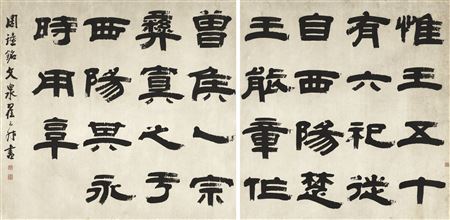 惟王五十
有六祀徙
自西陽楚
王能章作
曾侯乙宗
彝寘之于
西陽其永
時用享
周鐘銘文泉翟云升書